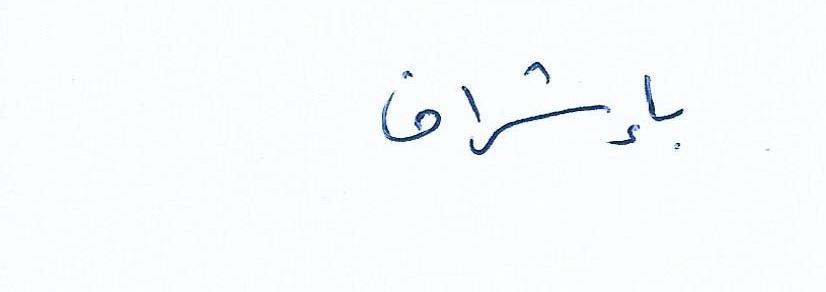 بإشراف